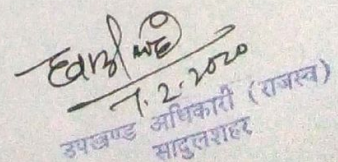 7.2.2020
उपखण्ड अधिकारी (राजस्व)
सादुलशहर